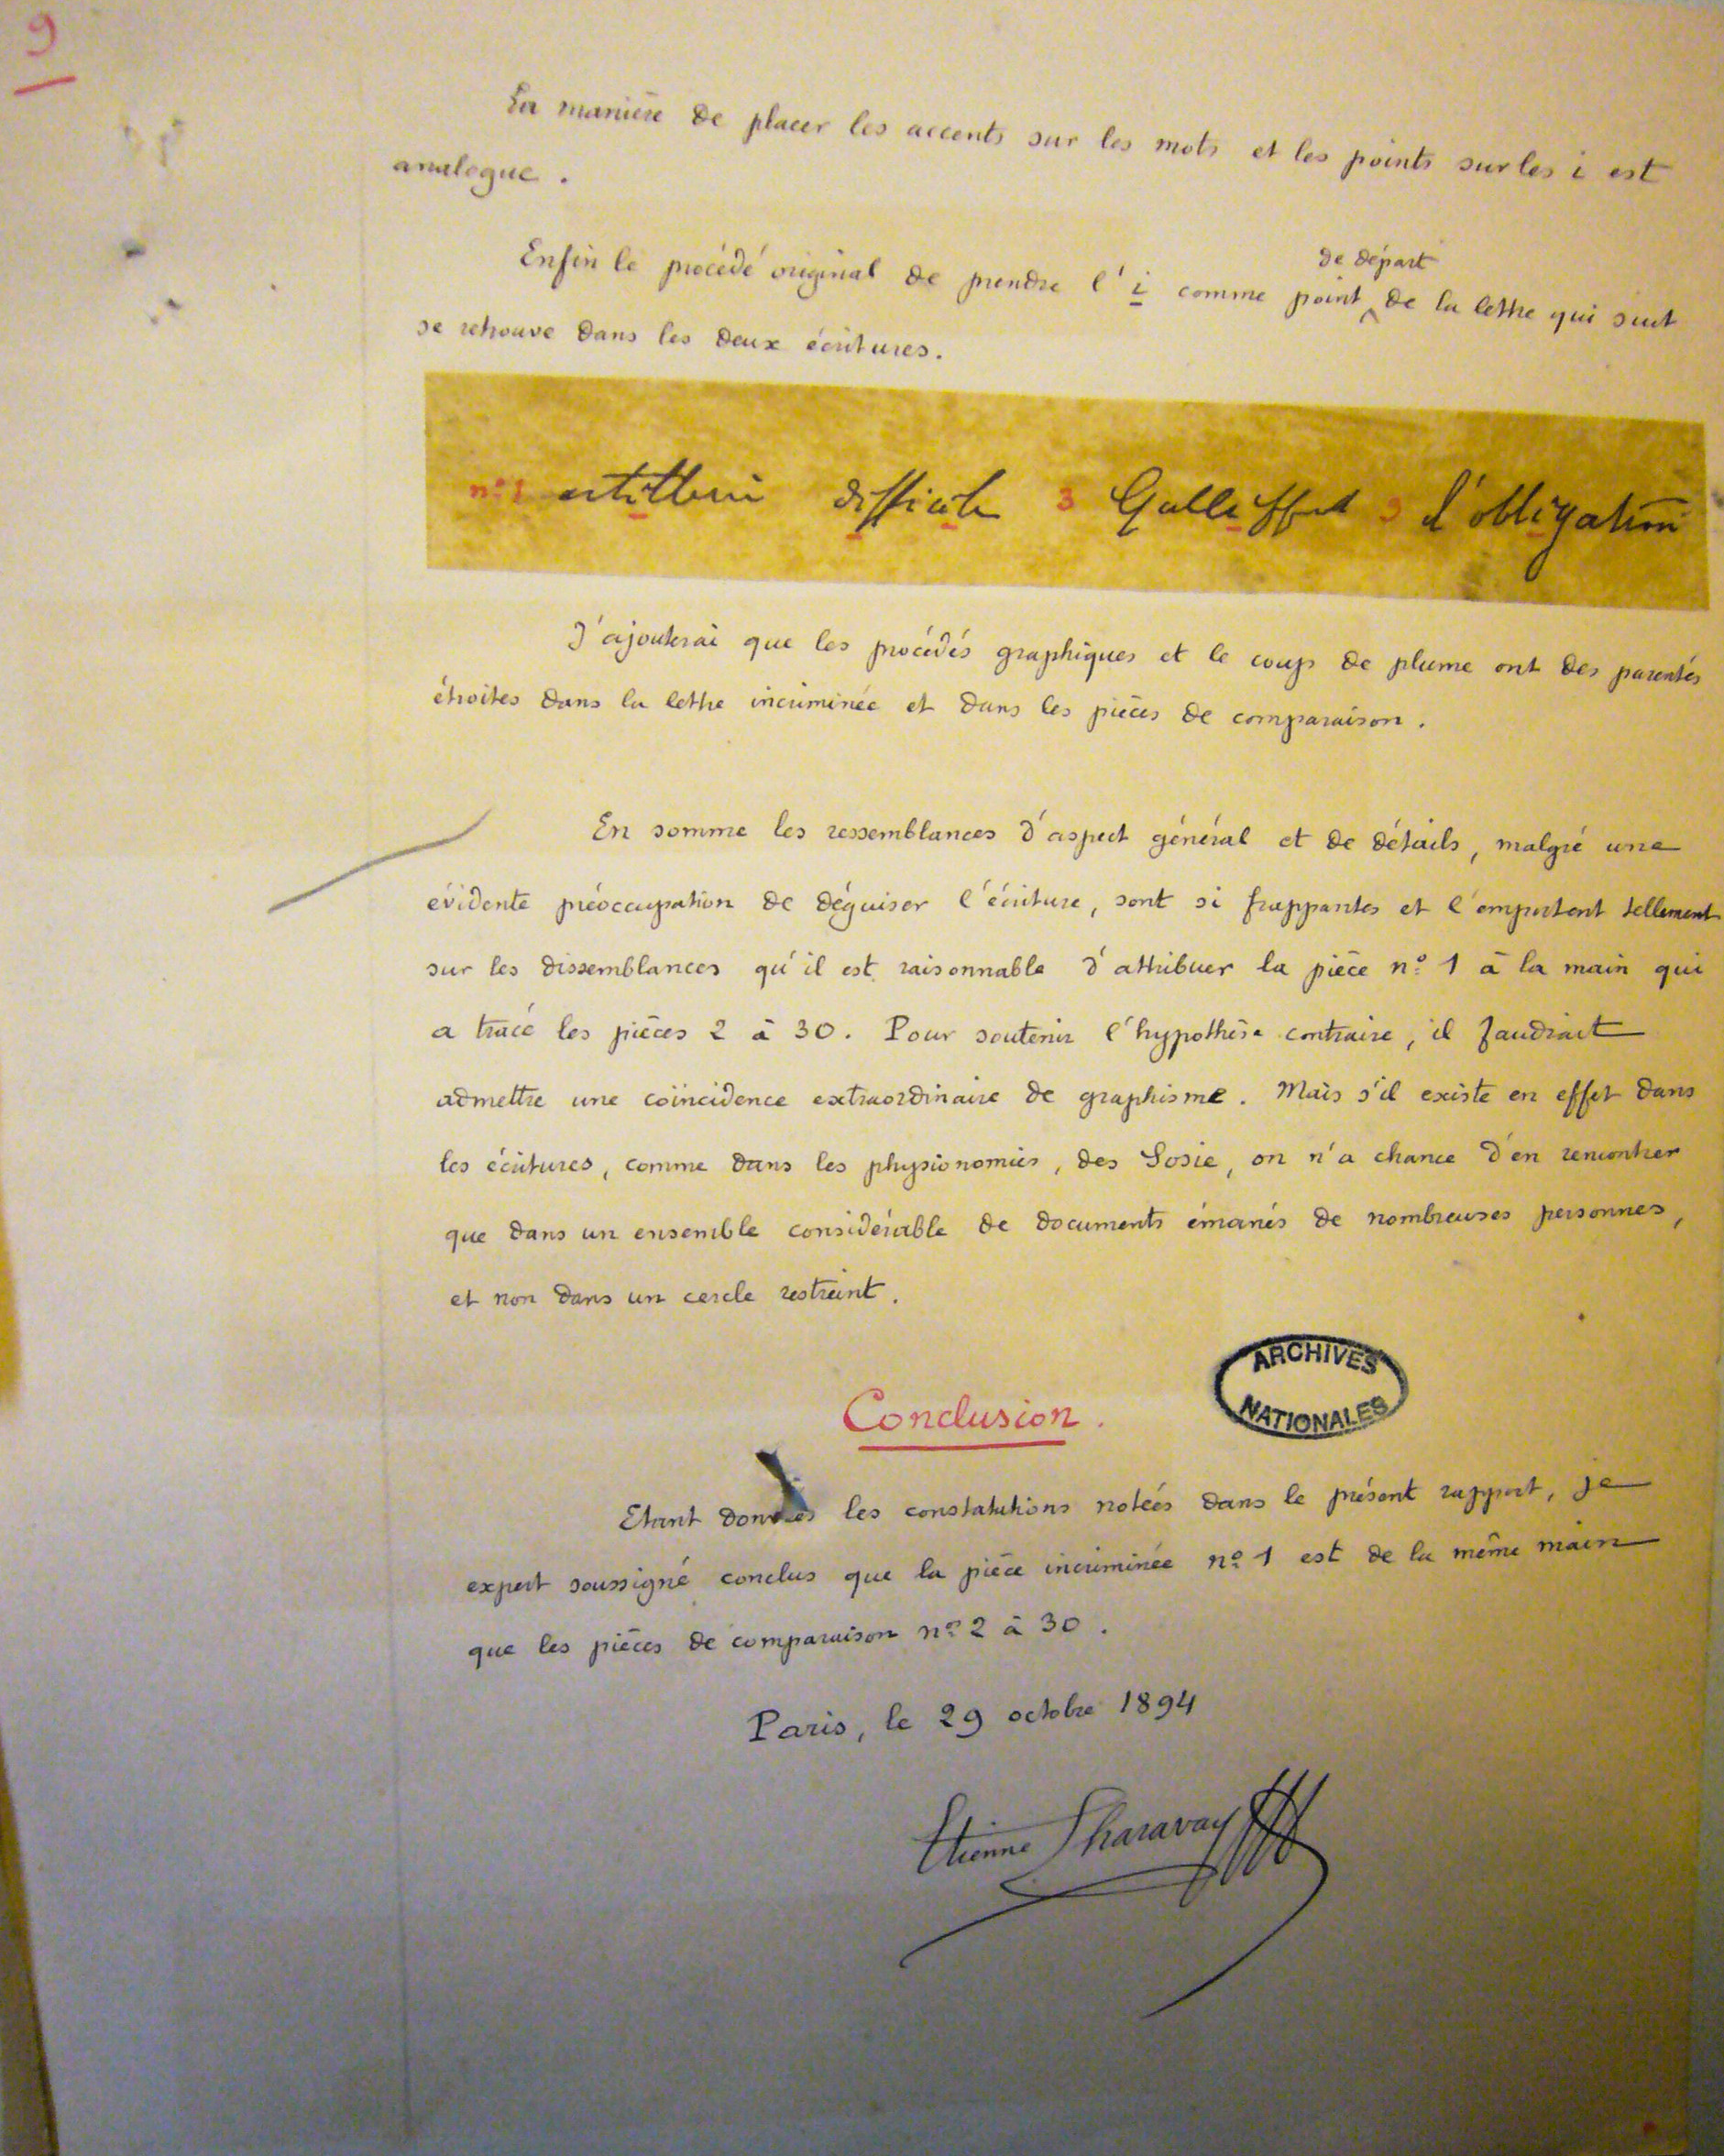 9
La manière de placer les accents sur les mots et les points sur les i est
analogue.
de départ
Enfin le procédé original de prendre l'i comme point de la lettre qui suit
se retrouve dans les deux écritures.
n° 1 artillerie difficile 3 Galliffet 9 l'obligation
J'ajouterai que les procédés graphiques et le coup de plume ont des parentés
étroites dans la lettre incriminée et dans les pièces de comparaison.
En somme les ressemblances d'aspect général et de détails, malgré une
évidente préoccupation de déguiser l'écriture, sont si frappantes et l'emportent tellement
sur les dissemblances qu'il est raisonnable d'attribuer la pièce n° 1 à la main qui
a tracé les pièces 2 à 30. Pour soutenir l'hypothèse contraire, il faudrait
admettre une coïncidence extraordinaire de graphisme. Mais s'il existe en effet dans
les écritures, comme dans les physionomies, des Sosie, on n'a chance d'en rencontrer
que dans un ensemble considérable de documents émanés de nombreuses personnes,
et non dans un cercle restreint.
ARCHIVES
NATIONALES
Conclusion.
Etant données les constatations notées dans le présent rapport, je
expert soussigné conclus que la pièce incriminée n° 1 est de la même main
que les pièces de comparaison n° 2 à 30.
Paris, le 29 octobre 1894
Etienne Charavay